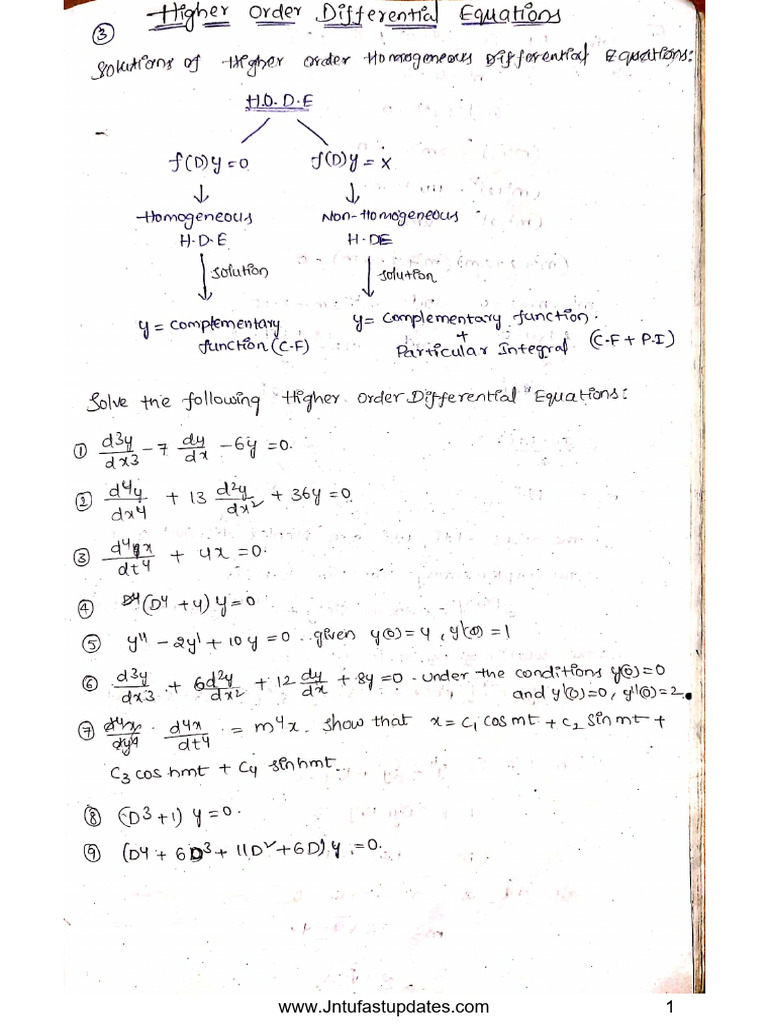 Higher Order Differential Equations
③
Solutions of Higher Order Homogeneous Differential Equations:
H.O.D.E
f(D)y=0 f(D)y=x
↓ ↓
Homogeneous Non-Homogeneous
H.D.E H.DE
↓ solution ↓ solution
y = complementary function (C.F) y = complementary function + Particular Integral (C.F + P.I)
Solve the following Higher Order Differential Equations:
① d3y/dx3 - 7 dy/dx - 6y = 0.
② d4y/dx4 + 13 d2y/dx2 + 36y = 0.
③ d4x/dt4 + 4x = 0.
④ (D4 + 4) y = 0
⑤ y'' - 2y' + 10y = 0 . given y(0) = 4, y'(0) = 1
⑥ d3y/dx3 + 6d2y/dx2 + 12 dy/dx + 8y = 0 . under the conditions y(0)=0
and y'(0)=0, y''(0)=2.
⑦ d4x/dt4 = m4x. show that x = c1 cos mt + c2 sin mt +
c3 cos hmt + c4 sin hmt.
⑧ (D3 + 1) y = 0.
⑨ (D4 + 6D3 + 11D2 + 6D) y = 0.
www.Jntufastupdates.com 1